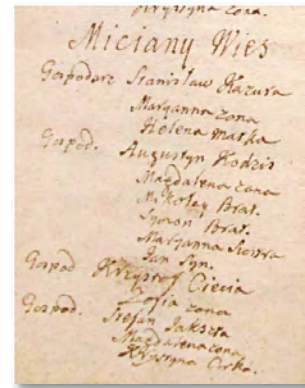 Krystyna Zona.
Miciany Wies
Gospodarz Stanisław Kazura
Maryanna Zona
Helena Matka
Gospod. Augustyn Kodzis
Magdalena Zona
Mikołay Brat.
Symon Brat.
Maryanna Siostra
Jan Syn.
Gospod Krzysztof Ciecia
Zofia Zona
Gospod. Stefan Jakszta
Magdalena Zona
Krystyna Corka.